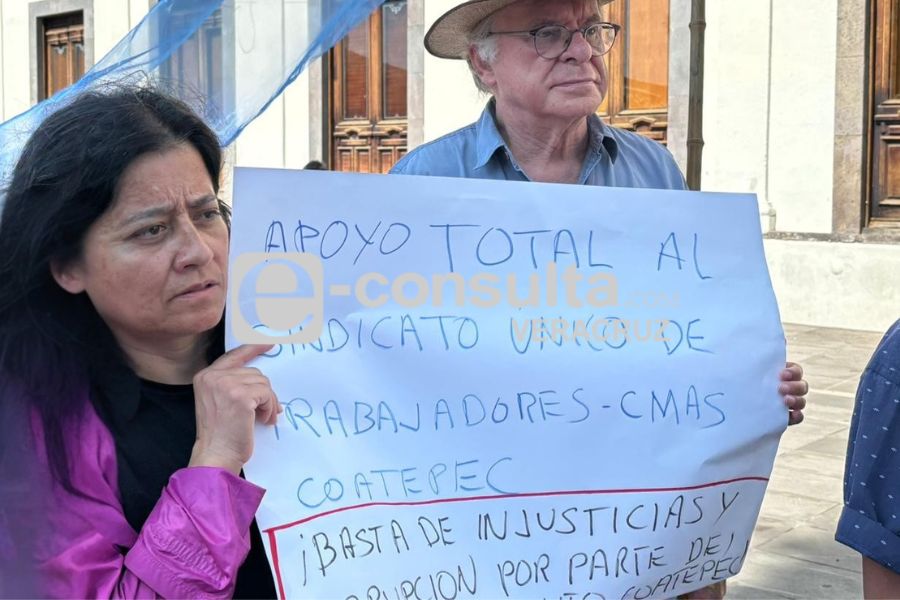 APOYO TOTAL AL
SINDICATO ÚNICO DE
TRABAJADORES-CMAS
COATEPEC
¡BASTA DE INJUSTICIAS Y
POR PARTE DEL
COATEPEC
e-consulta.com
VERACRUZ